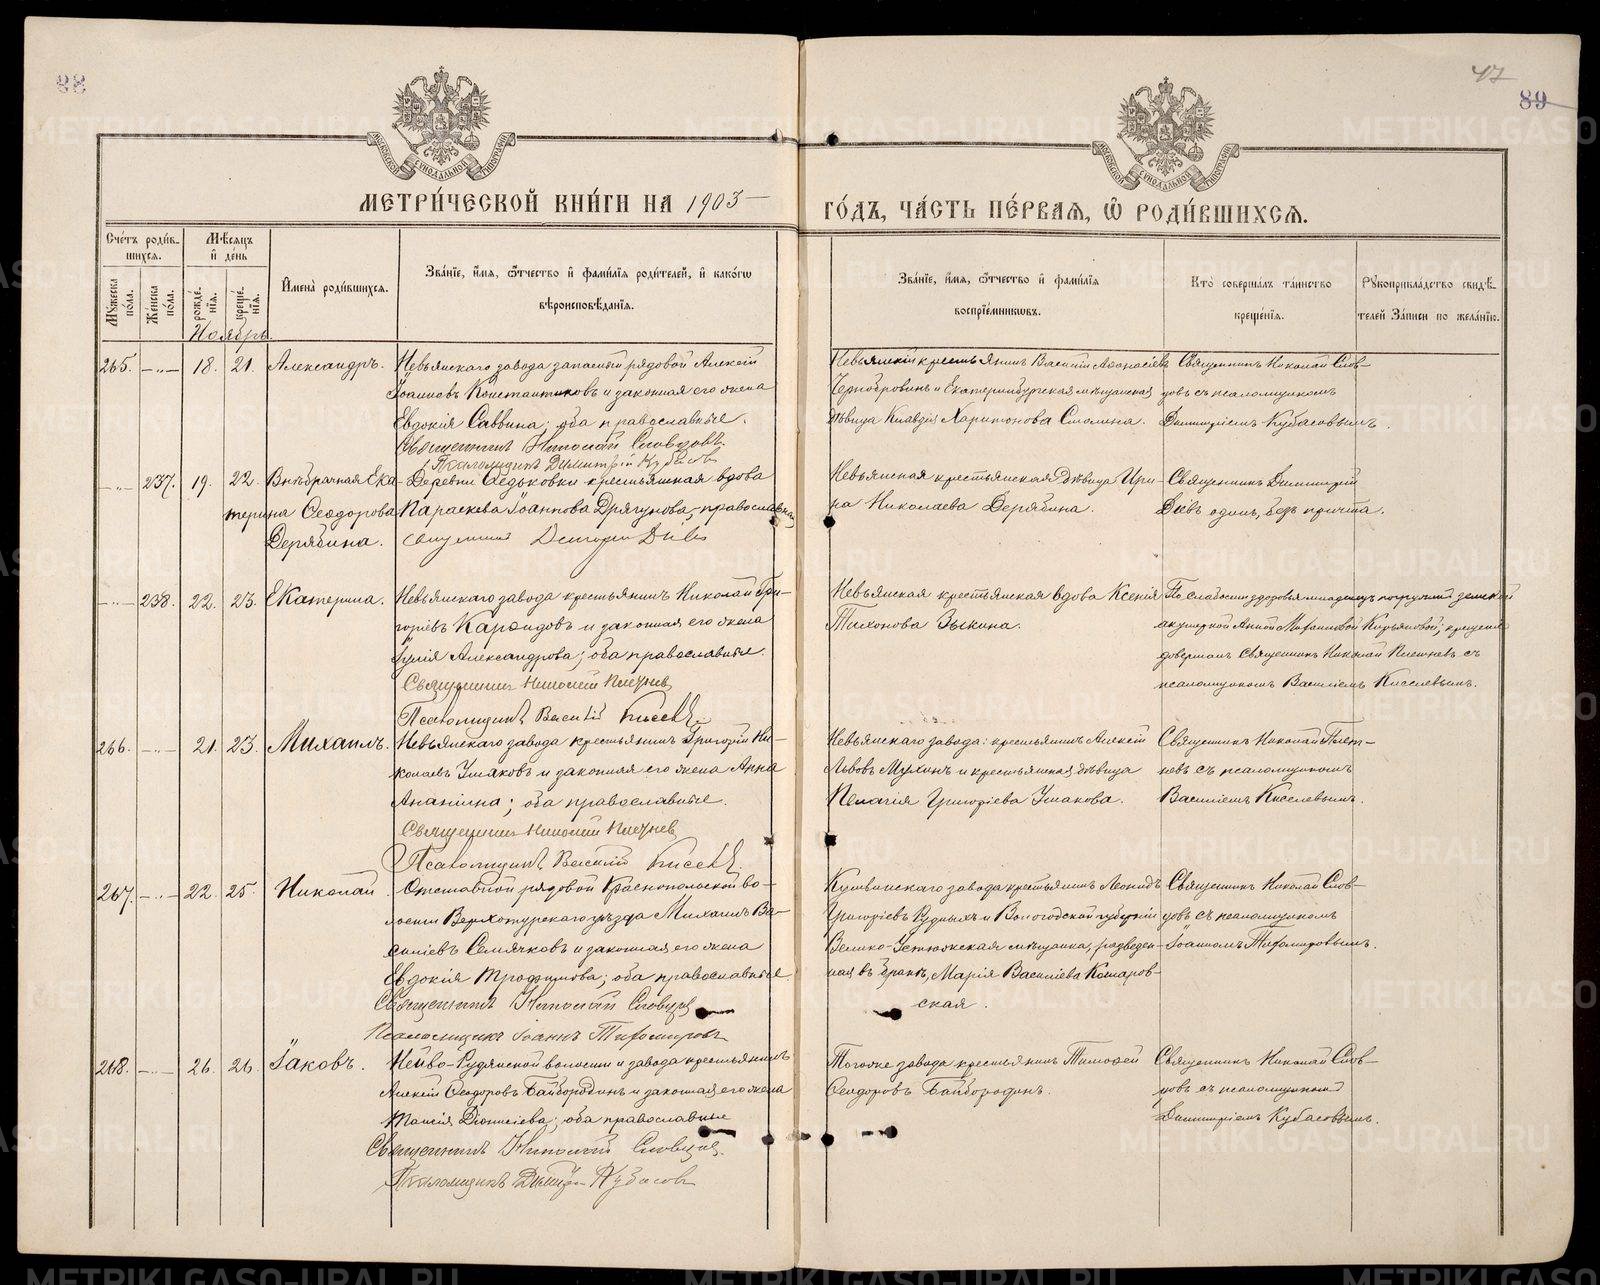 88
47
89
МОСКОВСКОЙ СѴНОДАЛЬНОЙ ТИПОГРАФІИ
МОСКОВСКОЙ СѴНОДАЛЬНОЙ ТИПОГРАФІИ
МЕТРИ́ЧЕСКОЙ КНИ́ГИ НА 1903
ГО́ДЪ, ЧА́СТЬ ПЕ́РВАѦ, Ѡ҆ РОДИ́ВШИХСѦ.
Сче́тъ роди́в-
шихсѧ.
Мѣ́сѧцъ
и҆ де́нь
Мꙋ́жеска по́ла.
Же́нска по́ла.
рожде́нїѧ.
креще́нїѧ.
И҆мена̀ роди́вшихсѧ.
Зва́нїе, и҆́мѧ, ѻ҆́тчество и҆ фами́лїѧ роди́телей, и҆ како́гѡ
вѣроисповѣ́данїѧ.
Зва́нїе, и҆́мѧ, ѻ҆́тчество и҆ фами́лїѧ
воспрїе́мникѡвъ.
Кто̀ соверша́лъ та́инство
креще́нїѧ.
Рꙋкоприкла́дство свидѣ́-
телей за́писи по жела́нїю.
Ноябрь.
265. —„— 18. 21. Александръ. Невьянскаго завода запасный рядовой Алексій
Іоанновъ Константиновъ и законная его жена
Евдокія Саввина; оба православные.
Священникъ Николай Словцовъ.
Псаломщикъ Димитрій Кубасовъ
Невьянскій крестьянинъ Василій Аѳанасіевъ
Чернобровинъ и Екатеринбургская мѣщанская
дѣвица Клавдія Харитонова Смолина.
Священникъ Николай Слов-
цовъ съ псаломщикомъ
Димитріемъ Кубасовымъ.
—„— 237. 19. 22. Внѣбрачная Ека-
терина Ѳеодорова
Дерябина.
Деревни Ѳедьковки крестьянская вдова
Параскева Іоаннова Дрягунова, православная
Священникъ Димитрій Діевъ
Невьянская крестьянская дѣвица Ири-
на Николаева Дерябина.
Священникъ Димитрій
Діевъ одинъ, безъ причта.
—„— 238. 22. 23. Екатерина. Невьянскаго завода крестьянинъ Николай Гри-
горіевъ Карэндовъ и законная его жена
Іулія Александрова; оба православные.
Священникъ Николай Плетневъ
Псаломщикъ Василій Киселевъ.
Невьянская крестьянская вдова Ксенія
Тихонова Зыкина.
По слабости здоровья младенца погружена земской
акушеркой Анной Киръяновой; крещеніе
довершалъ Священникъ Николай Плетневъ съ
псаломщикомъ Василіемъ Киселевымъ.
266. —„— 21. 23. Михаилъ. Невьянскаго завода крестьянинъ Григорій Ни-
колаевъ Ушаковъ и законная его жена Анна
Ананіина; оба православные.
Священникъ Николай Плетневъ
Псаломщикъ Василій Киселевъ.
Невьянскаго завода: крестьянинъ Алексій
Львовъ Мухинъ и крестьянская дѣвица
Пелагія Григоріева Ушакова.
Священникъ Николай Плет-
невъ съ псаломщикомъ
Василіемъ Киселевымъ.
267. —„— 22. 25. Николай. Отставной рядовой Краснопольской во-
лости Верхотурскаго уѣзда Михаилъ Ва-
силіевъ Семячковъ и законная его жена
Евдокія Трофимова; оба православные.
Священникъ Николай Словцовъ
Псаломщикъ Іоаннъ Тихомировъ
Кушвинскаго завода крестьянинъ Леонидъ
Григоріевъ Рудныхъ и Вологодской губерніи
Велико-Устюжская мѣщанка, разведен-
ная въ бракѣ, Марія Василіева Комаров-
ская.
Священникъ Николай Слов-
цовъ съ псаломщикомъ
Іоанномъ Тихомировымъ.
268. —„— 26. 26. Іаковъ. Нейво-Рудянской волости и завода крестьянинъ
Алексій Ѳеодоровъ Байбородинъ и законная его жена
Таисія Діонисіева; оба православные
Священникъ Николай Словцовъ.
Псаломщикъ Димитрій Кубасовъ
Тогоже завода крестьянинъ Тимоѳей
Ѳеодоровъ Байбородинъ.
Священникъ Николай Слов-
цовъ съ псаломщикомъ
Димитріемъ Кубасовымъ.
METRIKI.GASO-URAL.RU